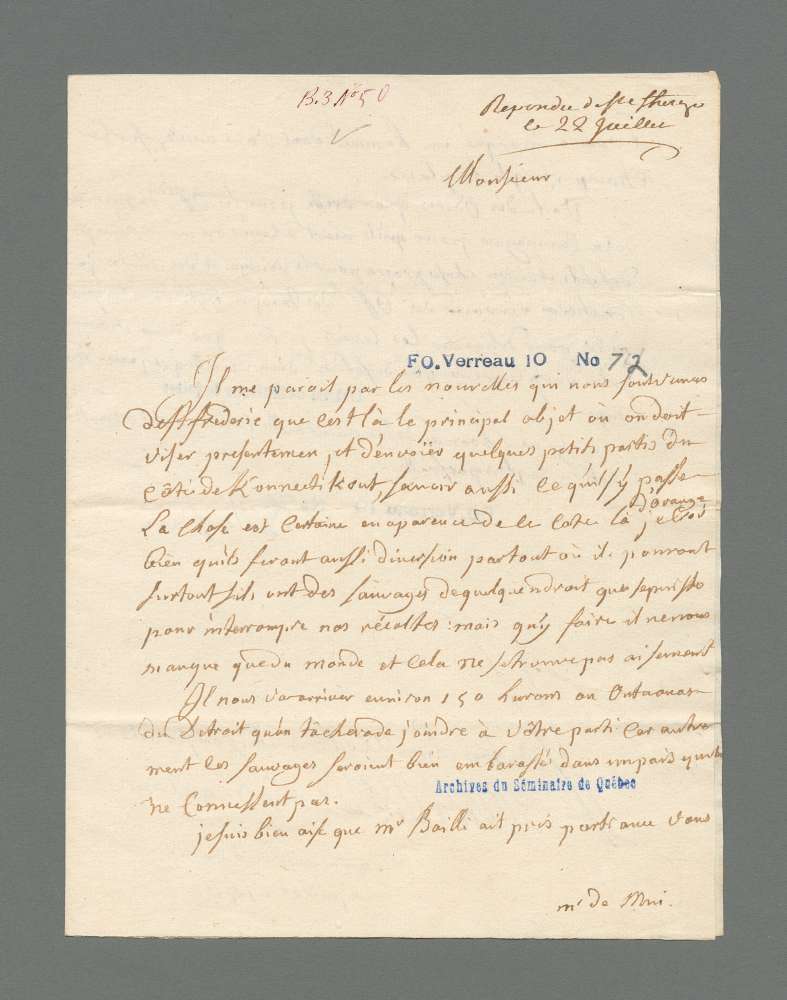 B.3 N° 50
Repondue de Ste Thereze
le 22 Juillet
Monsieur
FO. Verreau 10 No 72
Il me paroit par les nouvelles qui nous sont venues
de st frederic que c'est là le principal objet ou on doit
viser presentemen et d'envoïer quelques petits partis du
côté de Konnectikout savoir aussi ce qu'il s'y passe
La chose est certaine en aparence de le cote là d'orange je crois
bien qu'ils feront aussi diversion partout où ils pourront
surtout s'ils ont des sauvages de quelque endroit que se puisse
pour interrompre nos récoltes: mais qu'y faire il ne nous
manque que du monde et cela ne se trouve pas aisement
Il nous va arriver environ 150 hurons ou Outaouas
du Detroit qu'on tâchera de joindre à vôtre parti car autre
ment les sauvages seroient bien embarassés dans un païs qu'ils
ne Connessent pas.
Archives du Séminaire de Québec
je suis bien aise que mr Bailli ait pris parti avec vous
mr de Mui.